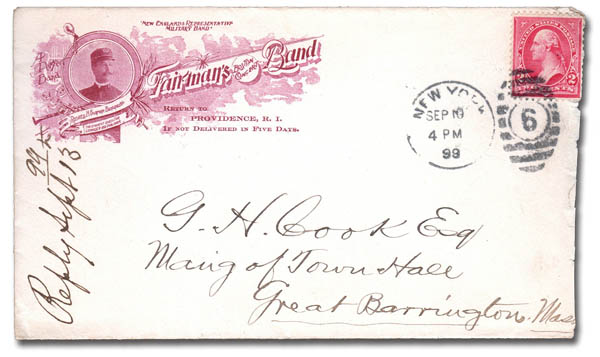 "NEW ENGLAND'S REPRESENTATIVE
MILITARY BAND"
Fairman's BOSTON CONCERT Band
RETURN TO
PROVIDENCE, R. I.
IF NOT DELIVERED IN FIVE DAYS.
UNITED STATES POSTAGE
2 2
TWO CENTS
NEW YORK
SEP 10
4 PM
99
6
Reply Sept 13
99
G. H. Cook Esq
Mang of Town Hall
Great Barrington. Mass